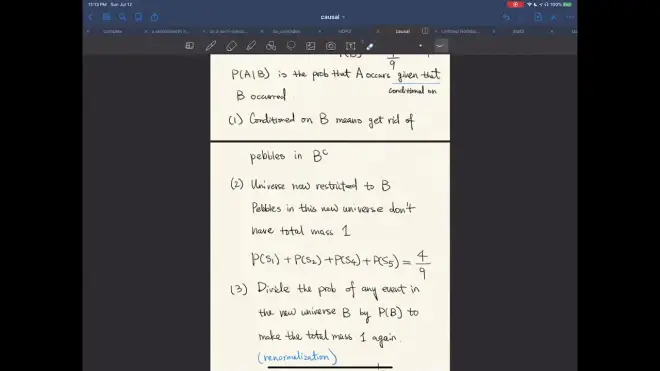 11:13 PM Sun Jul 12
100%
causal
complex
causal
P(B)
9
P(A|B) is the prob that A occurs given that
conditional on
B occurred
(1) Conditioned on B means get rid of
pebbles in Bᶜ
(2) Universe now restricted to B
Pebbles in this new universe don't
have total mass 1
P(S₁) + P(S₂) + P(S₄) + P(S₅) = 4/9
(3) Divide the prob of any event in
the new universe B by P(B) to
make the total mass 1 again.
(renormalization)